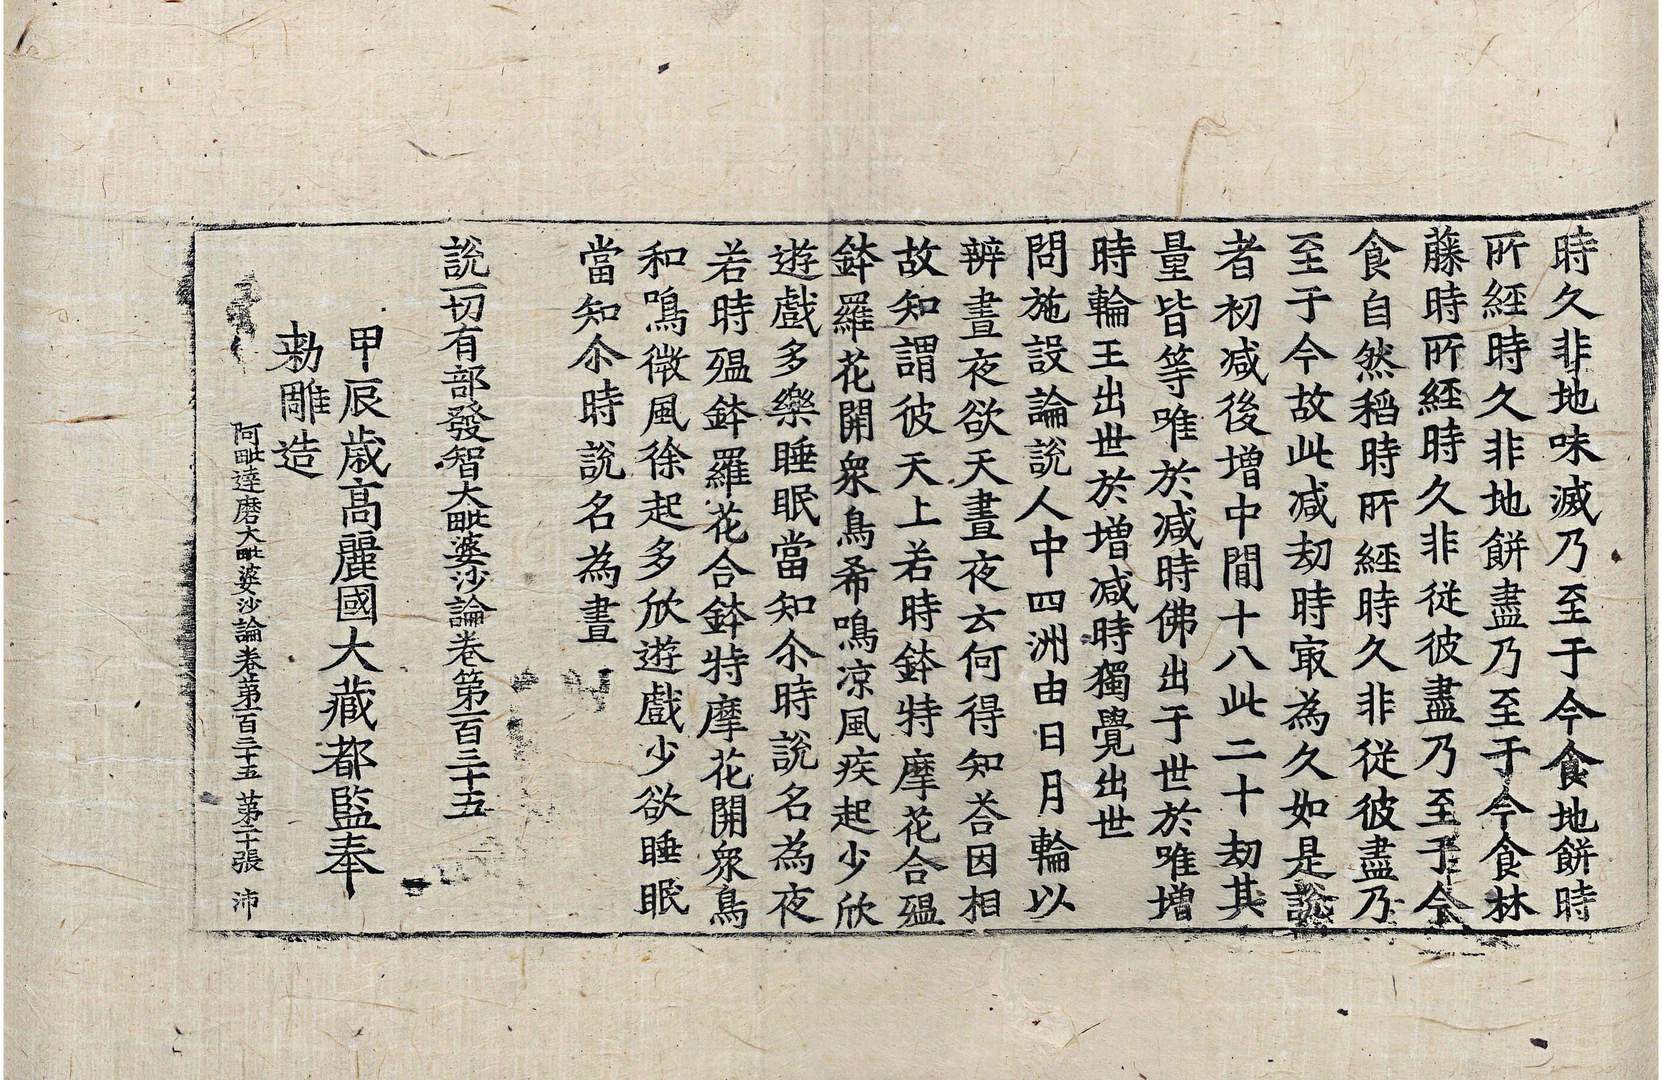 時久非地味滅乃至于今食地餅時
所經時久非地餅盡乃至于今食林
藤時所經時久非從彼盡乃至于今
食自然稻時所經時久非從彼盡乃
至于今故此減劫時㝡為久如是說
者初减後增中間十八此二十劫其
量皆等唯於減時佛出于世於唯增
時輪王出世於增减時獨覺出世
問施設論說人中四洲由日月輪以
辨晝夜欲天晝夜云何得知荅因相
故知謂彼天上若時鉢特摩花合殟
鉢羅花開衆鳥希鳴凉風疾起少欣
遊戲多樂睡眠當知尒時說名為夜
若時殟鉢羅花合鉢特摩花開衆鳥
和鳴微風徐起多欣遊戲少欲睡眠
當知尒時說名為晝
說一切有部發智大毗婆沙論卷第一百三十五
甲辰歲高麗國大藏都監奉
勑雕造
阿毗達磨大毗婆沙論卷第一百三十五 第二十張 沛